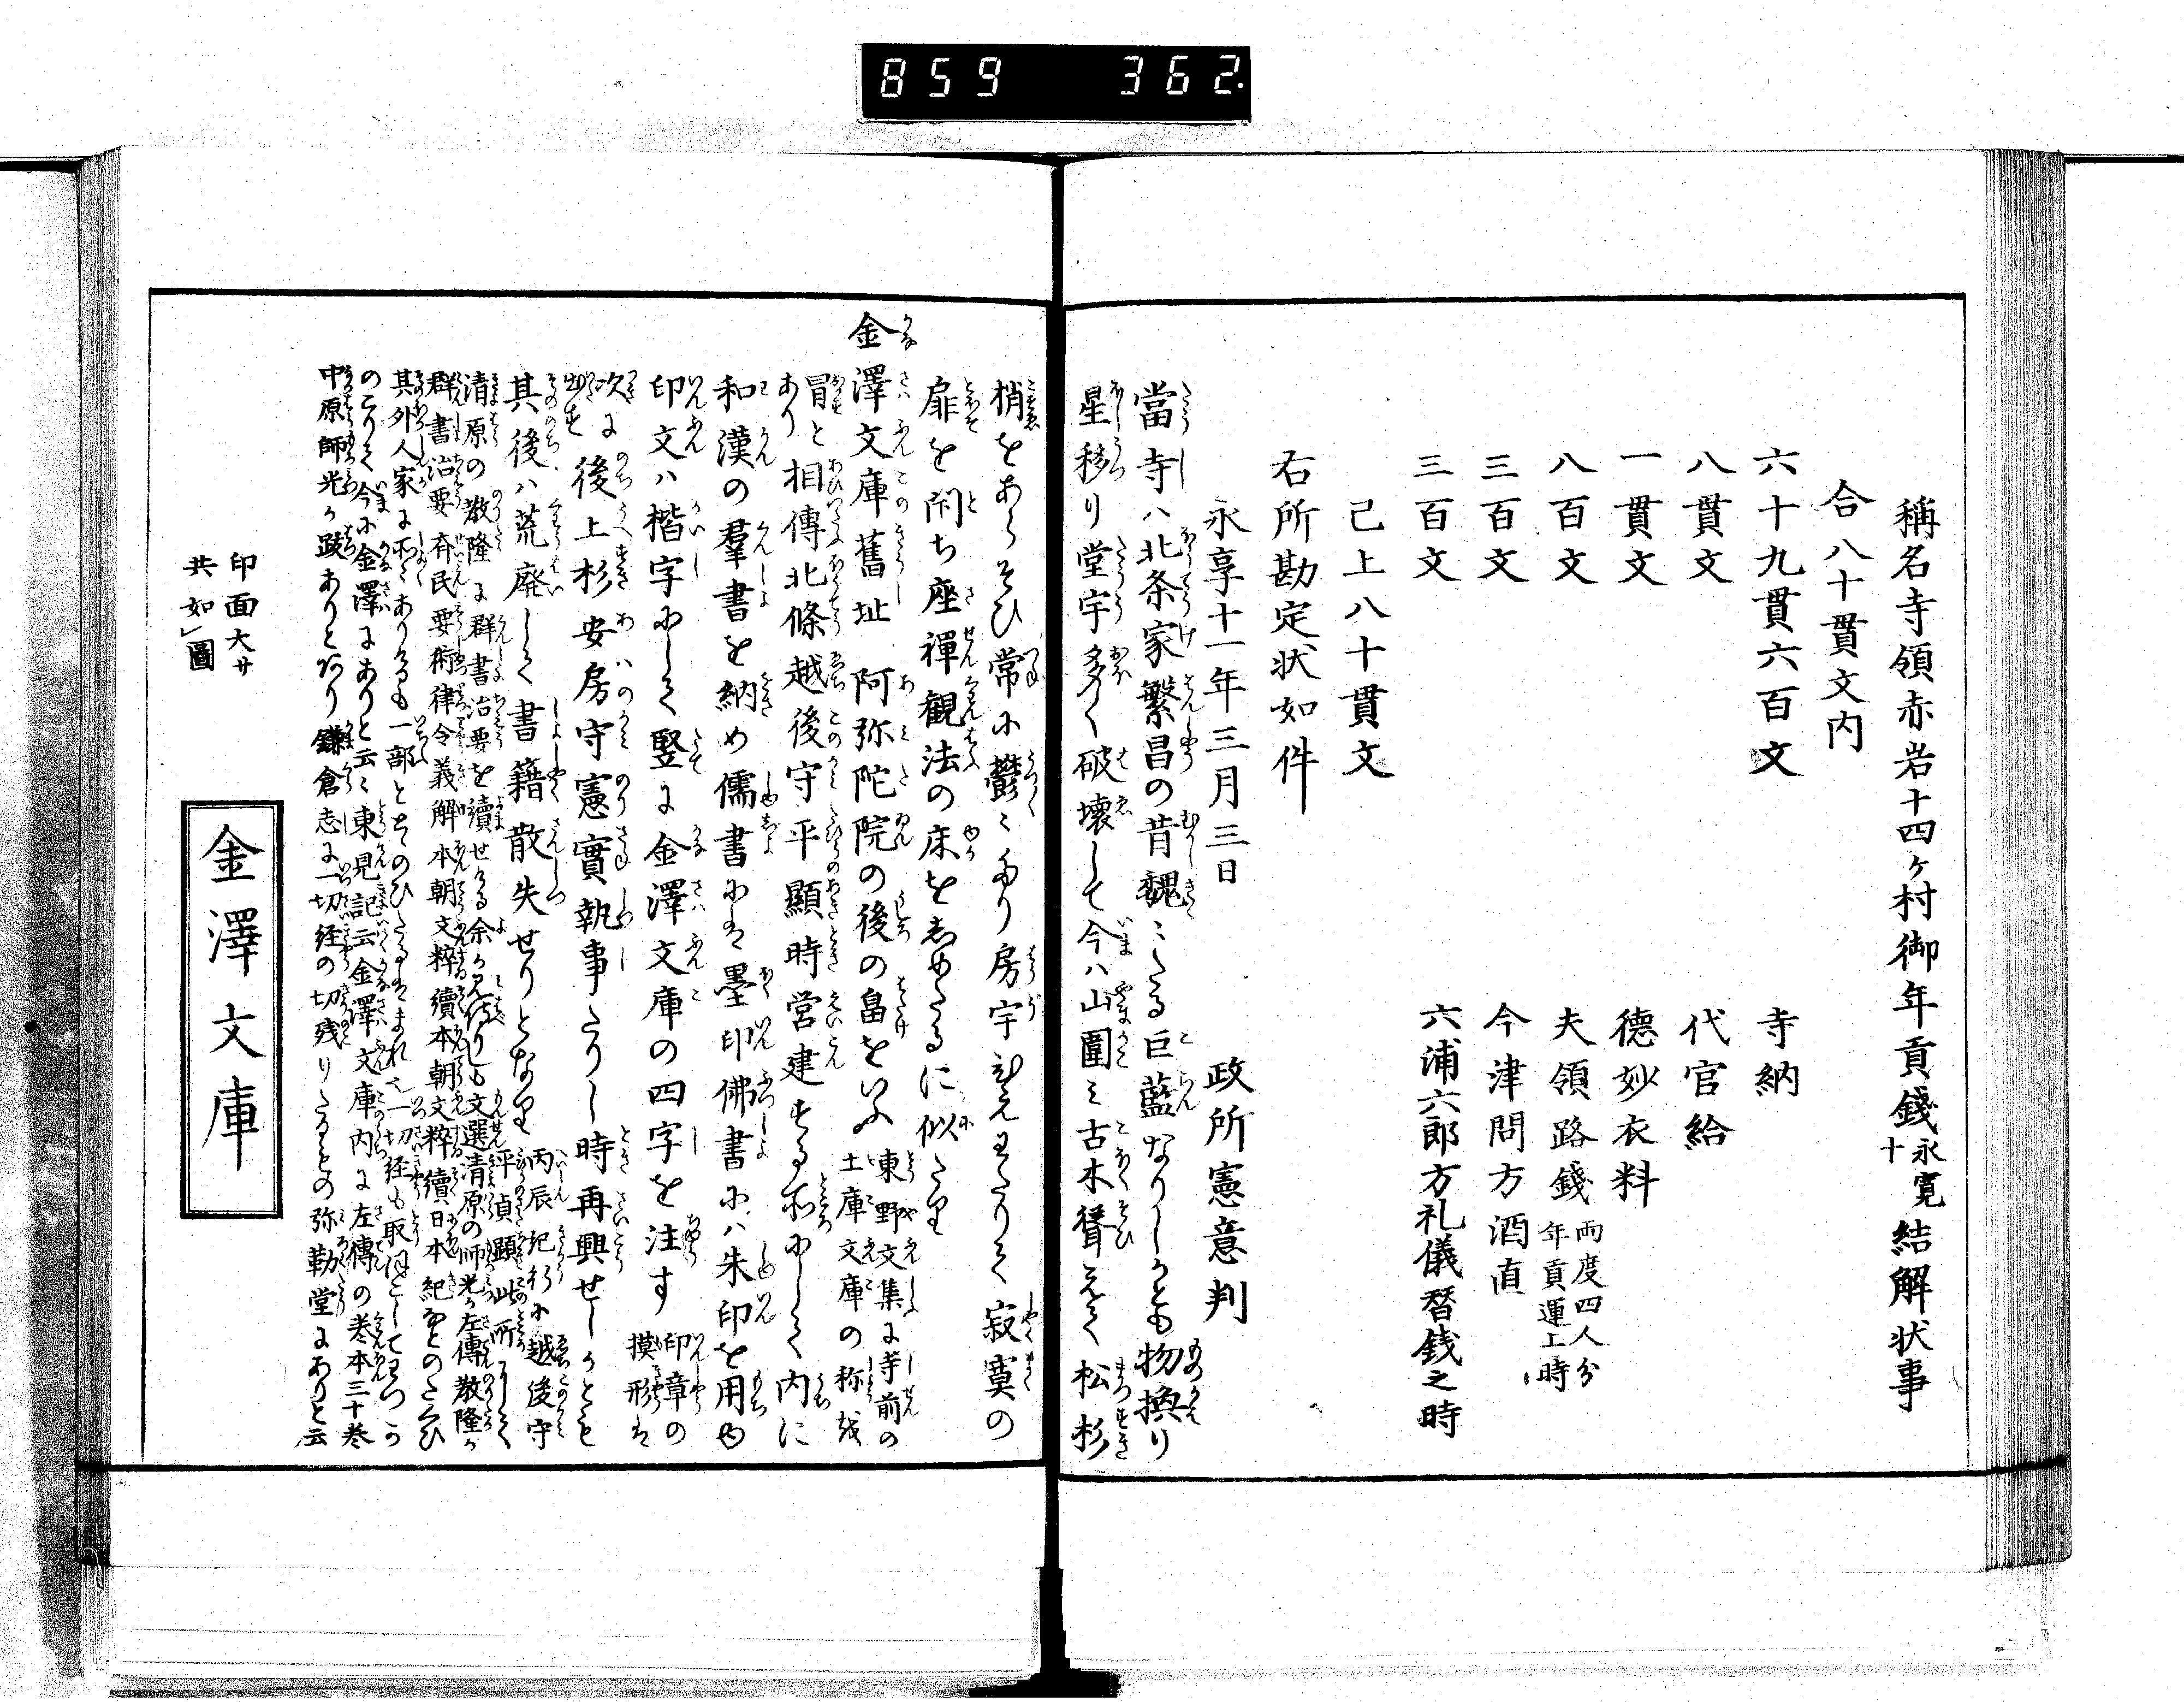 859 362.
稱名寺領赤岩十四ケ村御年貢錢永寛十結解状事
合八十貫文内
六十九貫六百文 寺納
八貫文 代官給
一貫文 德妙衣料
八百文 夫領路錢両度四人分年貢運上時
三百文 今津問方酒直
三百文 六浦六郎方礼儀替錢之時
已上八十貫文
右所勘定状如件
永享十一年三月三日 政所憲意判
當寺ハ北条家繁昌の昔巍〻たる巨藍なりしかとも物換り
星移り堂宇多く破壊して今ハ山圍ミ古木聳えて松杉
梢をあらそひ常に鬱〻たり房宇ひえわたりて寂寞の
扉を閇ち座禪観法の床をしめたるに似たり
金澤文庫舊址 阿弥陀院の後の畠をいふ東野文集に寺前の土庫文庫の称を
冒すと相傳北條越後守平顯時営建する所にして内に
あり
和漢の羣書を納め儒書には墨印佛書にハ朱印を用ゆ
印文ハ楷字にして竪に金澤文庫の四字を注す印章の摸形は
次に出す後上杉安房守憲實執事たりし時再興せしかとも
其後ハ荒廃して書籍散失せりとなり丙辰紀行に越後守平貞顯此所にして
清原の教隆に群書治要を讀せける余か見侍りしも文選清原の師光か左傳教隆か
群書治要齊民要術律令義解本朝文粋續本朝文粋續日本紀なとのたくひ
其外人家に所〻ありけるも一部とゝのひたるはまれ也一切経も取ほとしてわつか
のこりて今に金澤にありと云〻東見記云金澤文庫内に左傳の巻本三十巻
中原師光か跋ありとあり鎌倉志に一切経の切残りたるもの弥勒堂にありと云
印面大サ
共如圖
金澤文庫